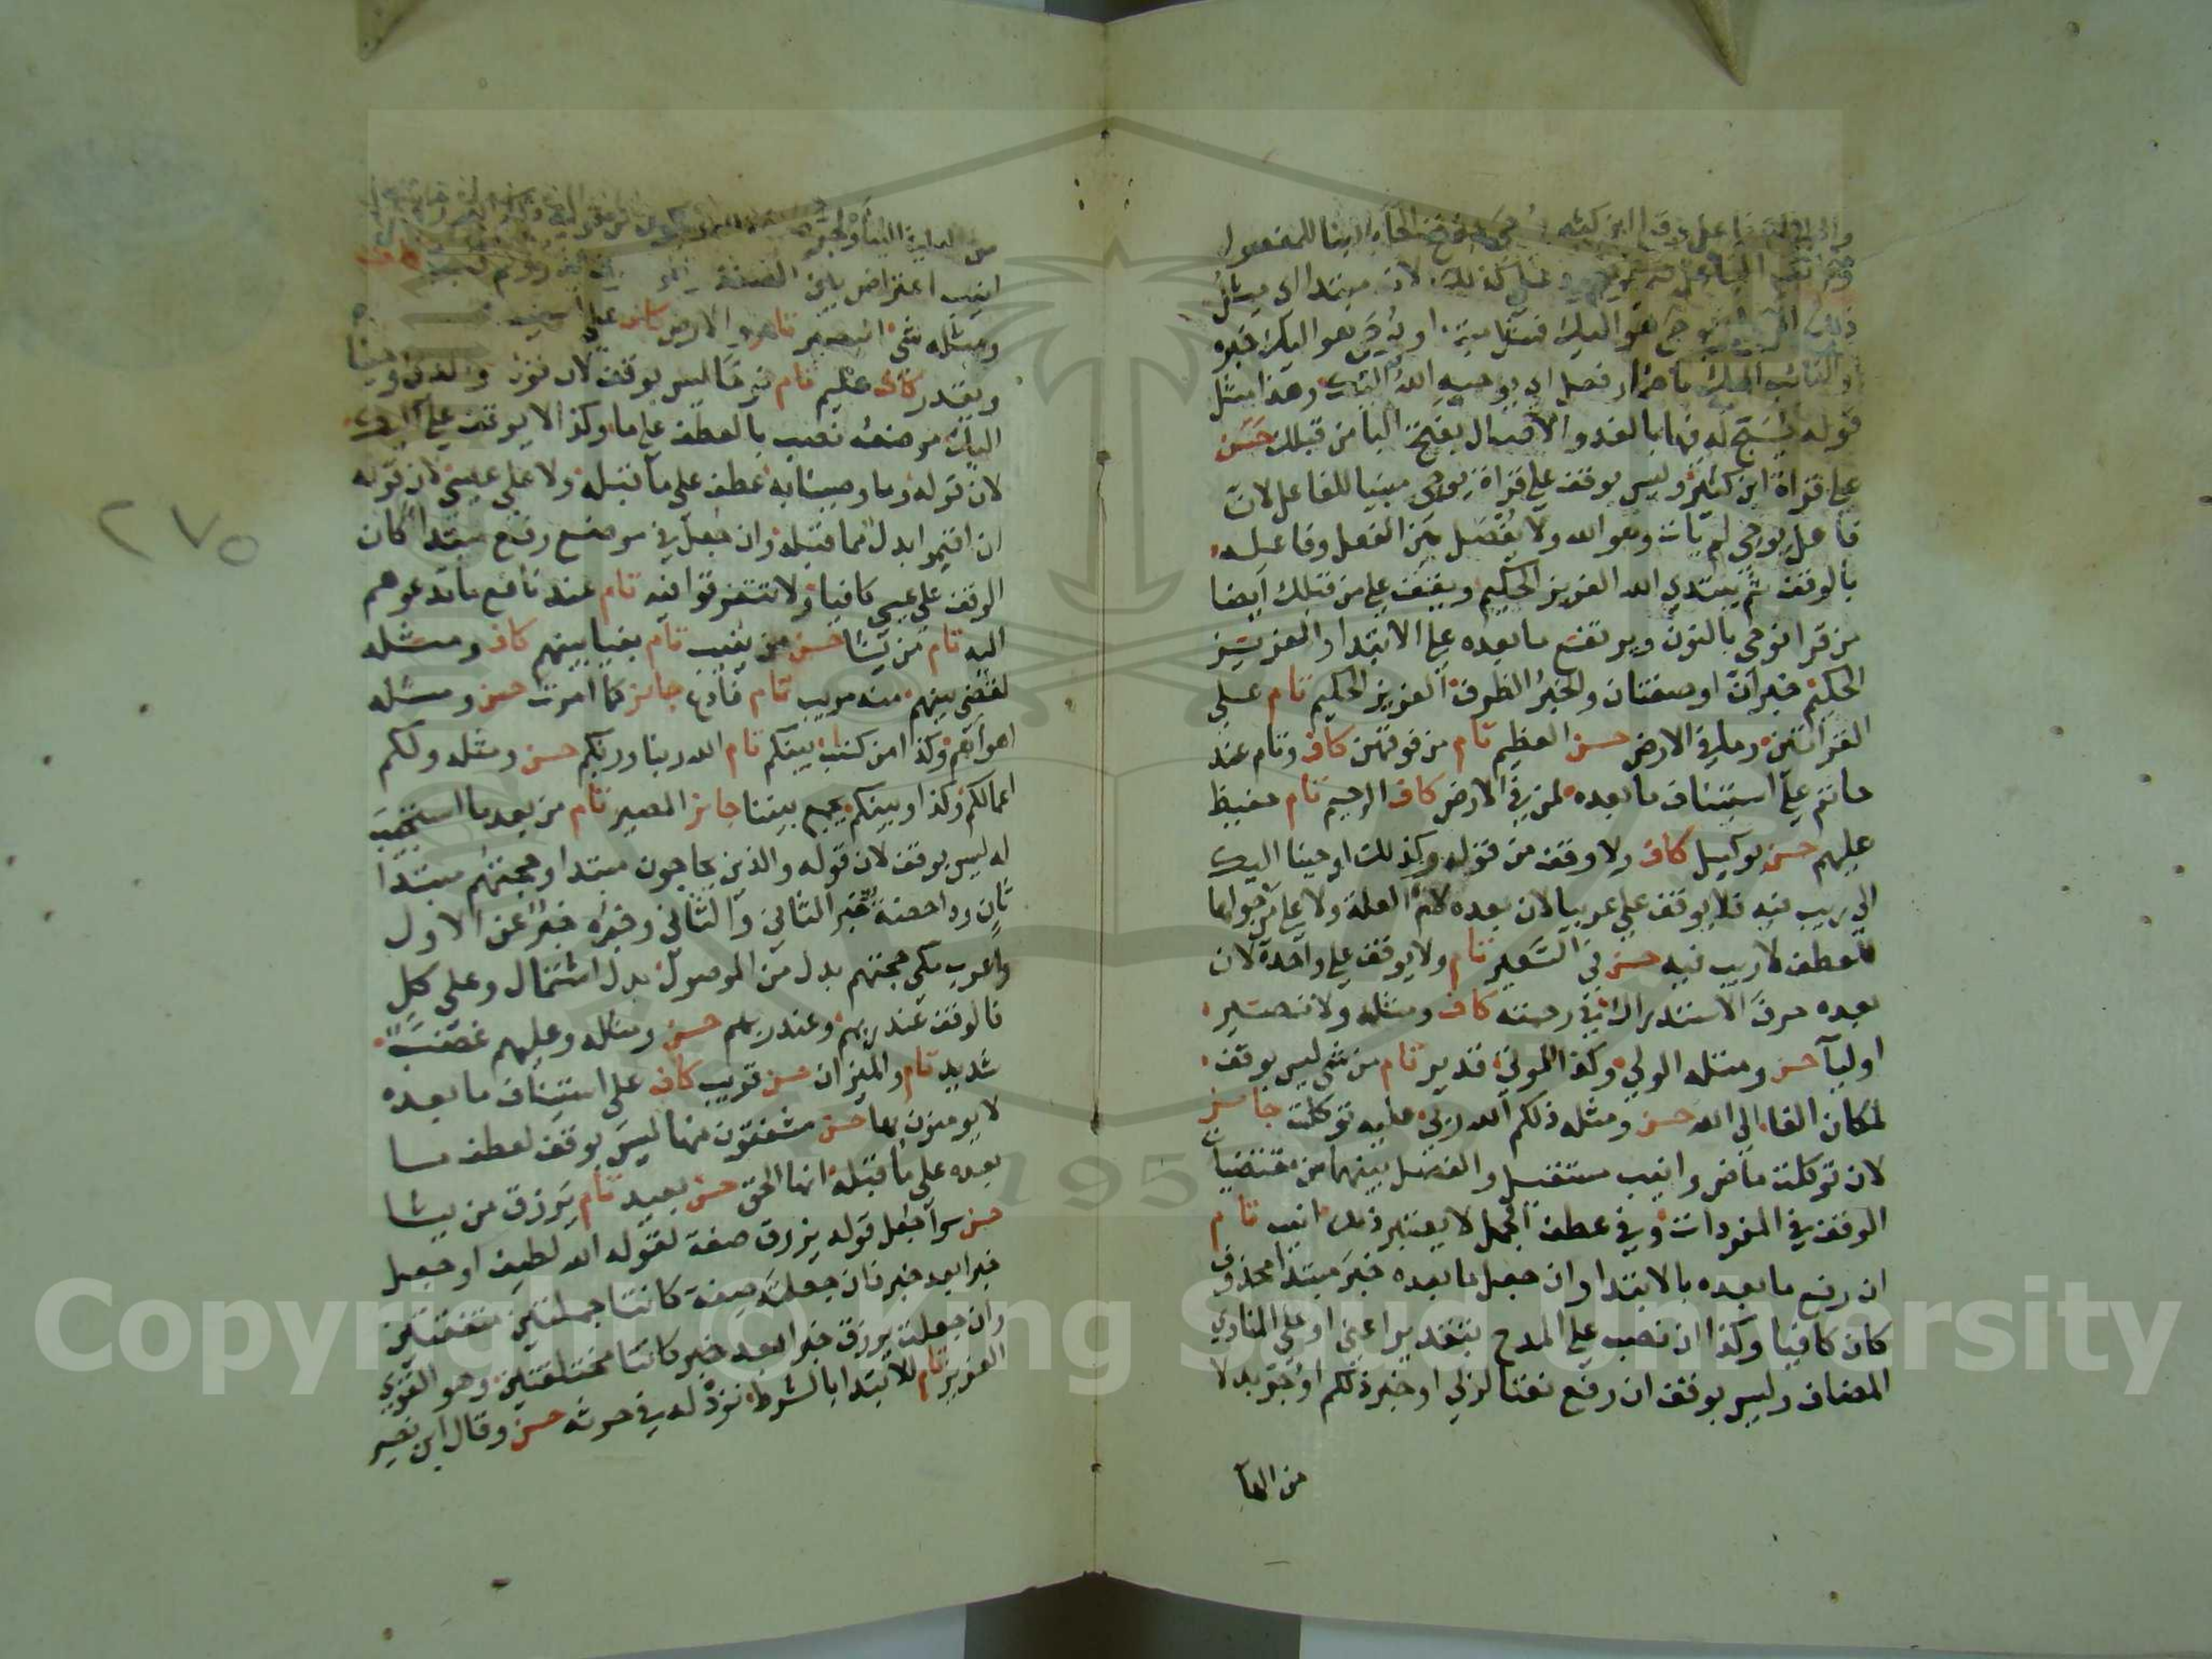 ابن كثير يوحى بفتح الحاء بالبنا للمفعول
كذلك لان مبتدا اي مثل
هو اليك
اي يوحيه الله اليك وهذا مثل
قوله يسبح له فيها بالغدو والاصال بفتح البا من قبلك حسن
على قراة ابن كثير وليس بوقف على قراة يوحي مبنيا للفاعل لان
فاعل يوحي لم يات وهو الله ولا يفصل بين الفعل وفاعله
بالوقف ثم يبتدي الله العزيز الحكيم ويقف على من قبلك ايضا
من قرا نوحي بالنون ويرتفع ما بعده على الابتدا والعزيز
الحكيم خبران او صفتان والخبر الظرف العزيز الحكيم تام على
القراتين وما في الارض حسن العظيم تام من فوقهن كاف وتام عند
حاتم على استيناف ما بعده لمن في الارض كاف الرحيم تام حفيظ
عليهم حسن بوكيل كاف ولا وقف من قوله وكذلك اوحينا اليك
الى ريب فيه فلا يوقف على عربيا لان بعده لام العلة ولا على من حولها
للعطف لا ريب فيه حسن في السعير تام ولا يوقف على واحدة لان
بعده حرف الاستدراك في رحمته كاف ومثله ولا نصير
اوليآ حسن ومثله الولي وكذا الموتى قدير تام من شي ليس بوقف
لمكان الفا الى الله حسن ومثله ذلكم الله ربي عليه توكلت جايز
لان توكلت ماض وانيب مستقبل والفصل بينهما من مقتضيات
الوقف في المفردات وفي عطف الجمل لا يعتبر ذلك انيب تام
ان رفع ما بعده بالابتدا وان جعل ما بعده خبر مبتدا محذوف
كان كافيا وكذا ان نصب على المدح بتقدير اعني او على المنادي
المضاف وليس بوقف ان رفع نعتا لربي او خبر ذلكم او جر بدلا
من الهآ
ومثله شي البصير تام والارض كاف على استيناف
ويقدر كاف عليم تام نوحا ليس بوقف لان قوله والذي اوحينا
اليك موضعه نصب بالعطف على ما وكذا لا يوقف على اليك
لان قوله وما وصينا به عطف على ما قبله ولا على عيسى لان قوله
ان اقيموا بدل مما قبله وان جعل في موضع رفع مبتدا كان
الوقف على عيسى كافيا ولا تتفرقوا فيه تام عند نافع ما تدعوهم
اليه تام من يشا حسن من ينيب تام بغيا بينهم كاف ومثله
لقضي بينهم منه مريب تام فادع جايز كما امرت حسن ومثله
اهواهم وكذا من كتاب بينكم تام الله ربنا وربكم حسن ومثله ولكم
اعمالكم وكذا وبينكم يجمع بيننا جايز المصير تام من بعد ما استجيب
له ليس بوقف لان قوله والذين يحاجون مبتدا وحجتهم مبتدا
ثان وداحضة خبر الثاني والثاني وخبره خبر عن الاول
واعرب مكي حجتهم بدل من الموصول بدل اشتمال وعلى كل
فالوقف عند ربهم وعند ربهم حسن ومثله وعليهم غضب
شديد تام والميزان حسن قريب كاف على استيناف ما بعده
لا يومنون بها حسن مشفقون منها ليس بوقف لعطف ما
بعده على ما قبله انها الحق حسن بعيد تام يرزق من يشا
حسن سوآ جعل قوله يرزق صفة لقوله الله لطيف او جعل
خبرا بعد خبر فان جعلته صفة كانتا جملتين متفقتين
وان جعلت يرزق خبرا بعد خبر كانتا مختلفتين وهو القوي
العزيز تام للابتدا بالشرط نزد له في حرثه حسن وقال ابن نصير
٢٧٥
Copyright © King Saud University